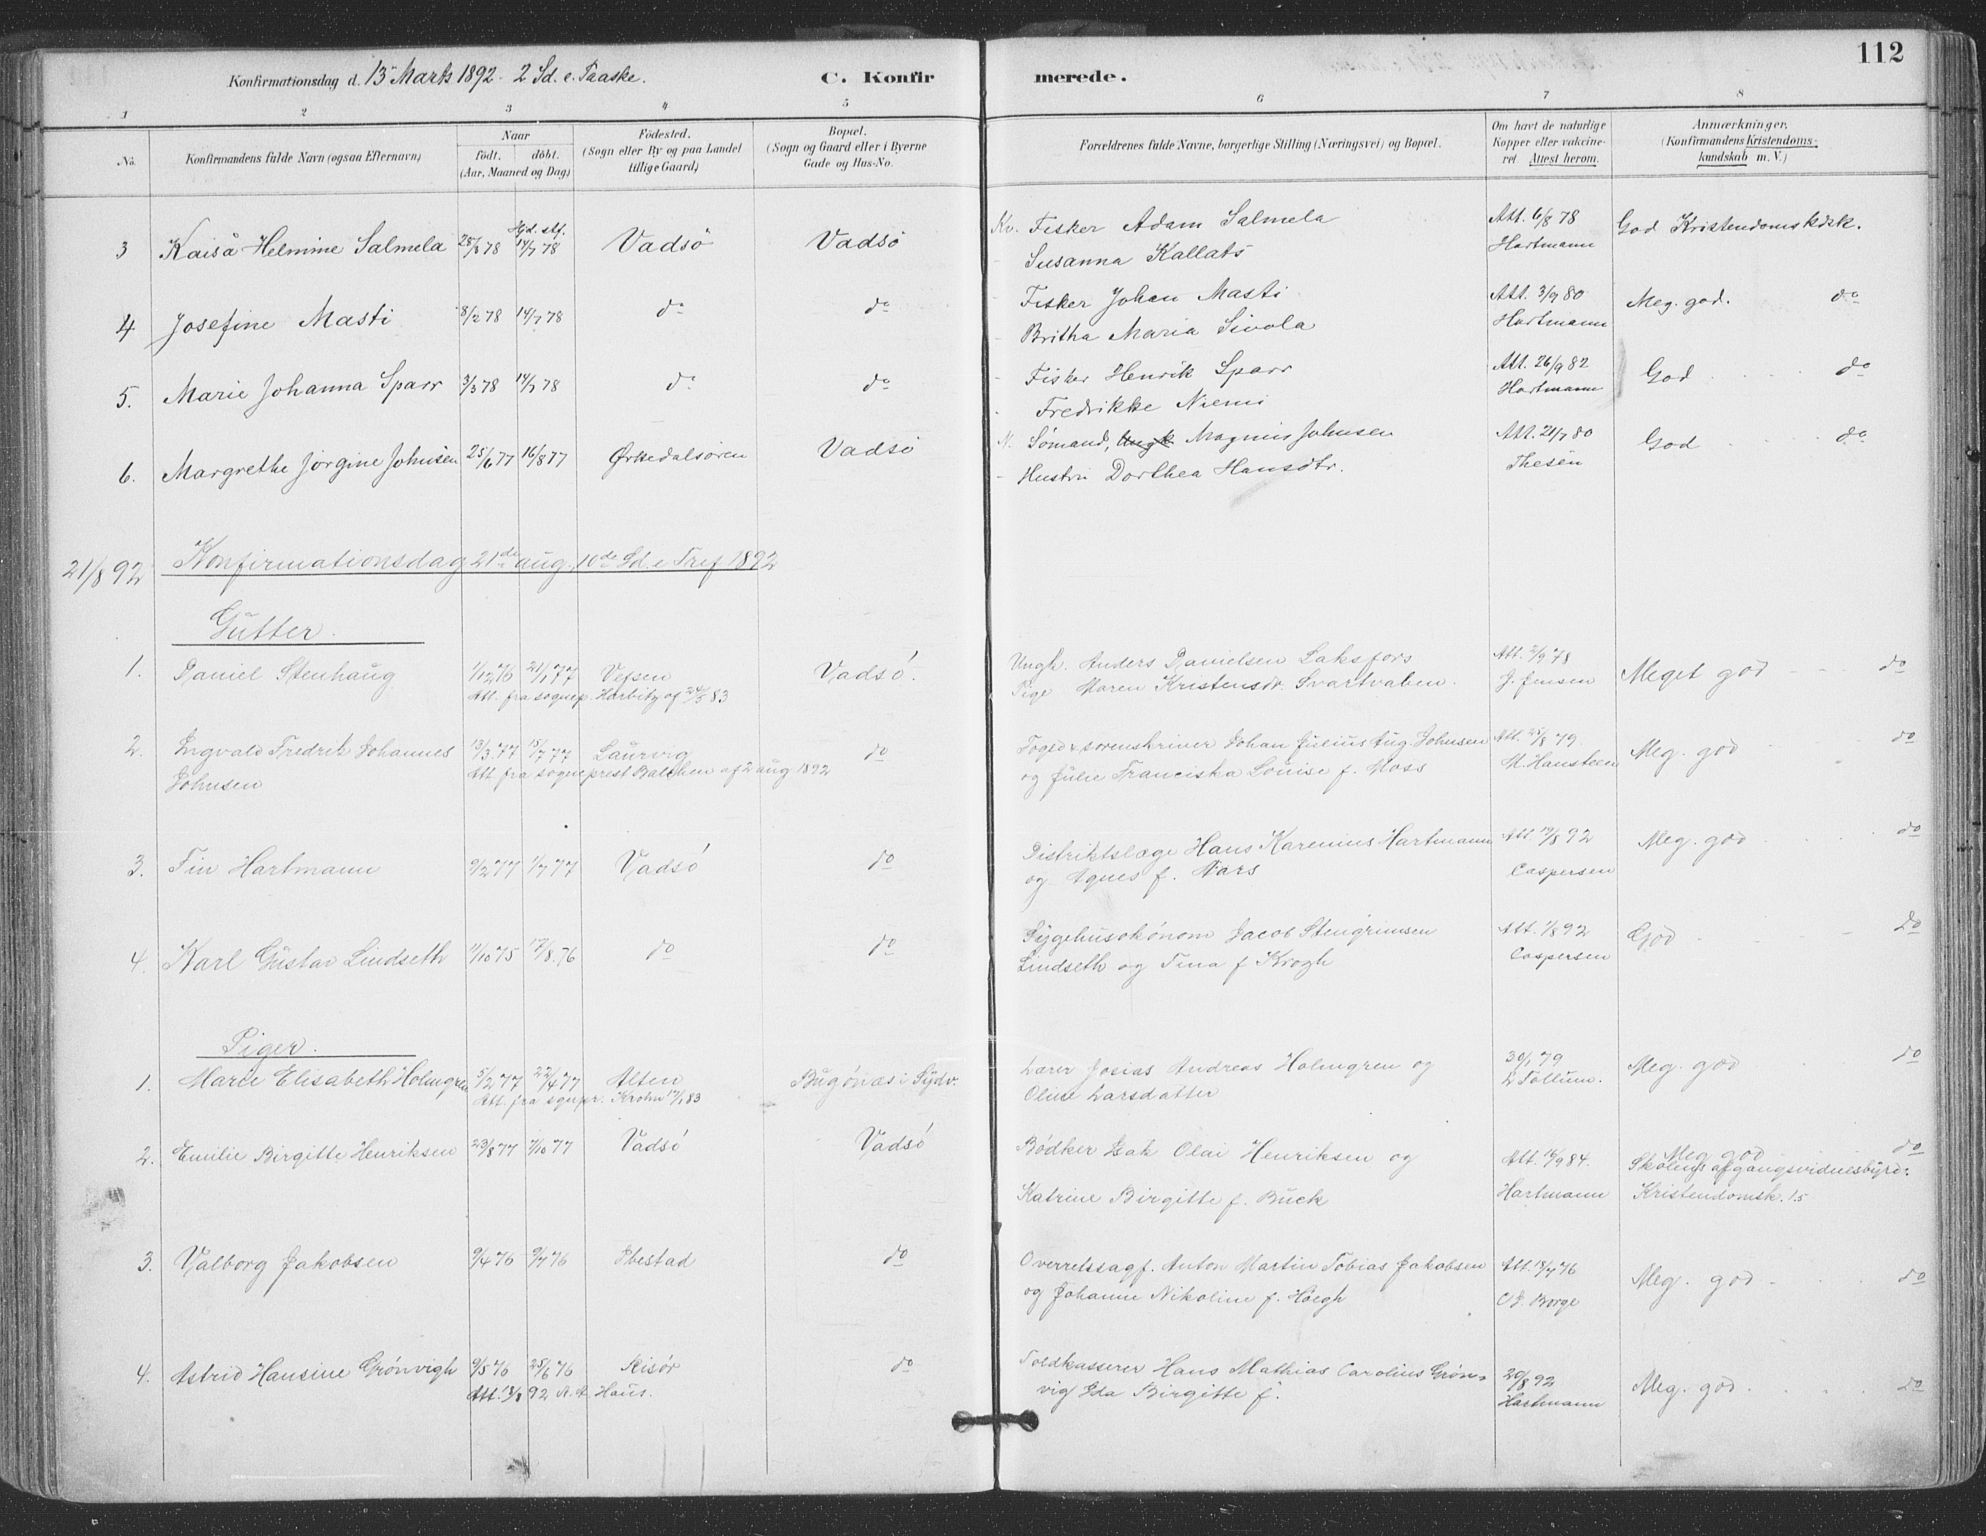 112
Konfirmationsdag d. 13 Marts 1892 - 2 Sd. e. Faaske.
C. Konfirmerede.
1 2 3 4 5 6 7 8
No. Konfirmandens fulde Navn (ogsaa Efternavn) Naar født. døbt. (Aar, Maaned og Dag) Fødested. (Sogn eller By og paa Landet tillige Gaard) Bopæl. (Sogn og Gaard eller i Byerne Gade og Hus-No. Forældrenes fulde Navne, borgerlige Stilling (Næringsvei) og Bopæl. Om havt de naturlige Kopper eller vakcineret Attest herom. Anmærkninger, (Konfirmandens Kristendomskundskab m. V.)
Hjd. stf.
3 Kaisa Helmine Salmela 28/3 78 14/7 78 Vadsö Vadsö Kv. Fisker Adam Salmela Att. 6/8 78 God Kristendomskdsk.
Susanna Kallats Hartmann
4 Josefine Masti 8/2 78 14/7 78 do do - Fisker Johan Masti Att. 3/9 80 Meg. god. do
- Britha Maria Sivola Hartmann
5. Marie Johanna Sparr 3/3 78 14/7 78 do do - Fisker Henrik Sparr Att. 26/9 82 God do
- Fredrikke Niemi Hartmann
6. Margrethe Jörgine Johnsen 25/6 77 16/8 77 Ørkedalsören Vadsö N. Sömand, Ungk. Magnus Johnsen Att. 21/7 80 God do
- Hustru Dorthea Hansdtr. Thesen
21/8 92 Konfirmationsdag 21de aug. 10de Sd. e Tref 1892
Gutter.
1. Daniel Stenhaug 1/12 76 21/1 77 Vefsen Vadsö. Ungk. Anders Danielsen Laksfors Att. 2/9 78 Meget god do
Att. fra sognep. Harbitz af 24/5 83 Pige Maren Kristensdr. Svartvaben. J. Jensen
2. Ingvald Fredrik Johannes 13/3 77 15/7 77 Laurvig do Foged & sorenskriver Johan Julius Aug. Johnsen Att. 25/8 79. Meg. god do
Johnsen Att. fra sogneprest Balchen af 2 aug 1892 og Julie Franciska Louise f. Moss M. Hansteen
3. Fin Hartmann 9/2 77 1/7 77 Vadsö do Distriktslæge Hans Karenius Hartmann Att. 19/8 92 Meg. god do
og Agnes f. Nars Caspersen
4. Karl Gustav Lindseth 11/10 75 17/8 76 do do Sygehusökonom Jacob Stengrimsen Att. 1/8 92 God Do
Lindseth og Tina f Krogh Caspersen
Piger.
1. Marie Elisabeth Holmgren 5/2 77 22/4 77 Alten Bugönæs i Sydv. Lærer Josias Andreas Holmgren og 30/1 79 Meg. god do
Att. fra sgnepr. Krohn 17/1 83 Oline Larsdatter L Tollum.
2. Emilie Birgitte Henriksen 23/8 77 7/10 77 Vadsö Vadsö Bödker Isak Olai Henriksen og Att. 16/9 84. Meg god do
Skolens afgangsvidnesbyrd:
Katrine Birgitte f. Buck Hartmann Kristendomsk. 1.5
3. Valborg Jakobsen 9/4 76 9/7 76 Ibestad do Overretssagf. Anton Martin Tobias Jakobsen Att. 18/7 76 Meg. god do
og Johanne Nikoline f. Höegh O J. Borge
4. Astrid Hansine Grönvigh 9/5 76 25/6 76 Risör do Toldkasserer Hans Mathias Carolius Grön- 20/8 92 Meg. god do
Att. 13/8 92 N. A. Haus. vig Ida Birgitte f. Hartmann